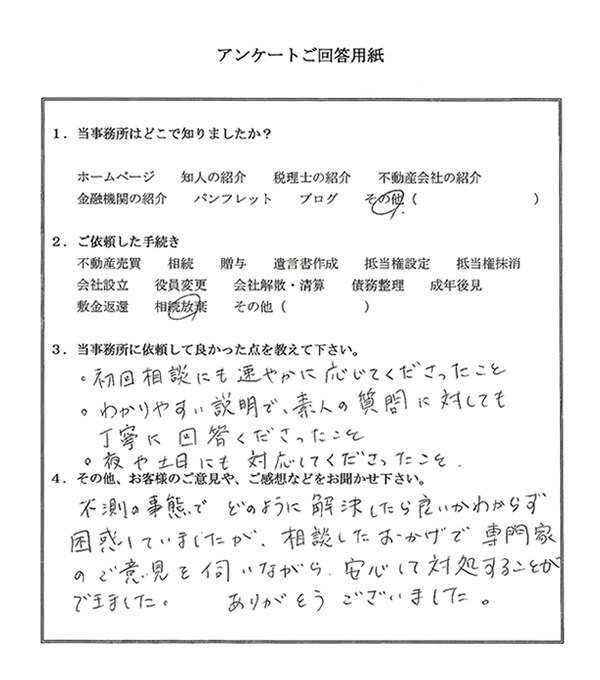 アンケートご回答用紙
1．当事務所はどこで知りましたか？
ホームページ　知人の紹介　税理士の紹介　不動産会社の紹介
金融機関の紹介　パンフレット　ブログ　その他（　　　　　　）
2．ご依頼した手続き
不動産売買　相続　贈与　遺言書作成　抵当権設定　抵当権抹消
会社設立　役員変更　会社解散・清算　債務整理　成年後見
敷金返還　相続放棄　その他（　　　　）
3．当事務所に依頼して良かった点を教えて下さい。
。初回相談にも速やかに応じてくださったこと
。わかりやすい説明で、素人の質問に対しても
丁寧に回答くださったこと
。夜や土日にも対応してくださったこと．
4．その他、お客様のご意見や、ご感想などをお聞かせ下さい。
不測の事態で どのように解決したら良いかわからず
困惑していましたが、相談したおかげで 専門家
のご意見を伺いながら、安心して対処することが
できました。　ありがとう ございました。